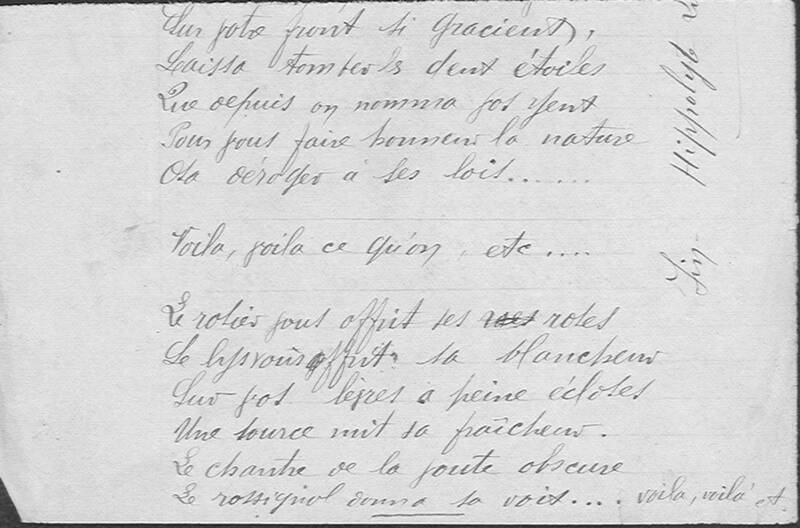 Sur votre front si gracieux,
Laissa tomber ls deux étoiles
Que depuis on nomma vos yeux
Pour vous faire honneur la nature
Osa déroger à ses lois......
Voila, voila ce qu'on, etc....
Le rosier vous offrit ses roses
Le lys vous offrit sa blancheur
Sur vos lèvres à peine écloses
Une source mit sa fraîcheur.
Le chantre de la voute obscure
Le rossignol donna sa voix.... voila, voilà
Fin - Hippolyte